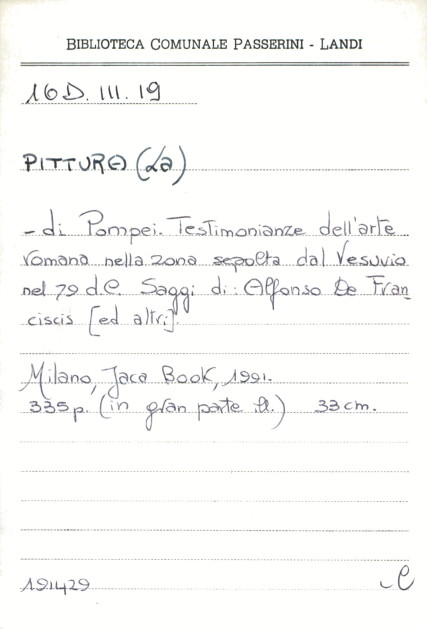 BIBLIOTECA COMUNALE PASSERINI - LANDI
16D. III. 19
PITTURA (La)
- di Pompei. Testimonianze dell'arte
romana nella zona sepolta dal Vesuvio
nel 79 d.C. Saggi di: Alfonso De Fran
ciscis [ed altri].
Milano, Jaca Book, 1991.
335 p. (in gran parte ill.) 33 cm.
191429